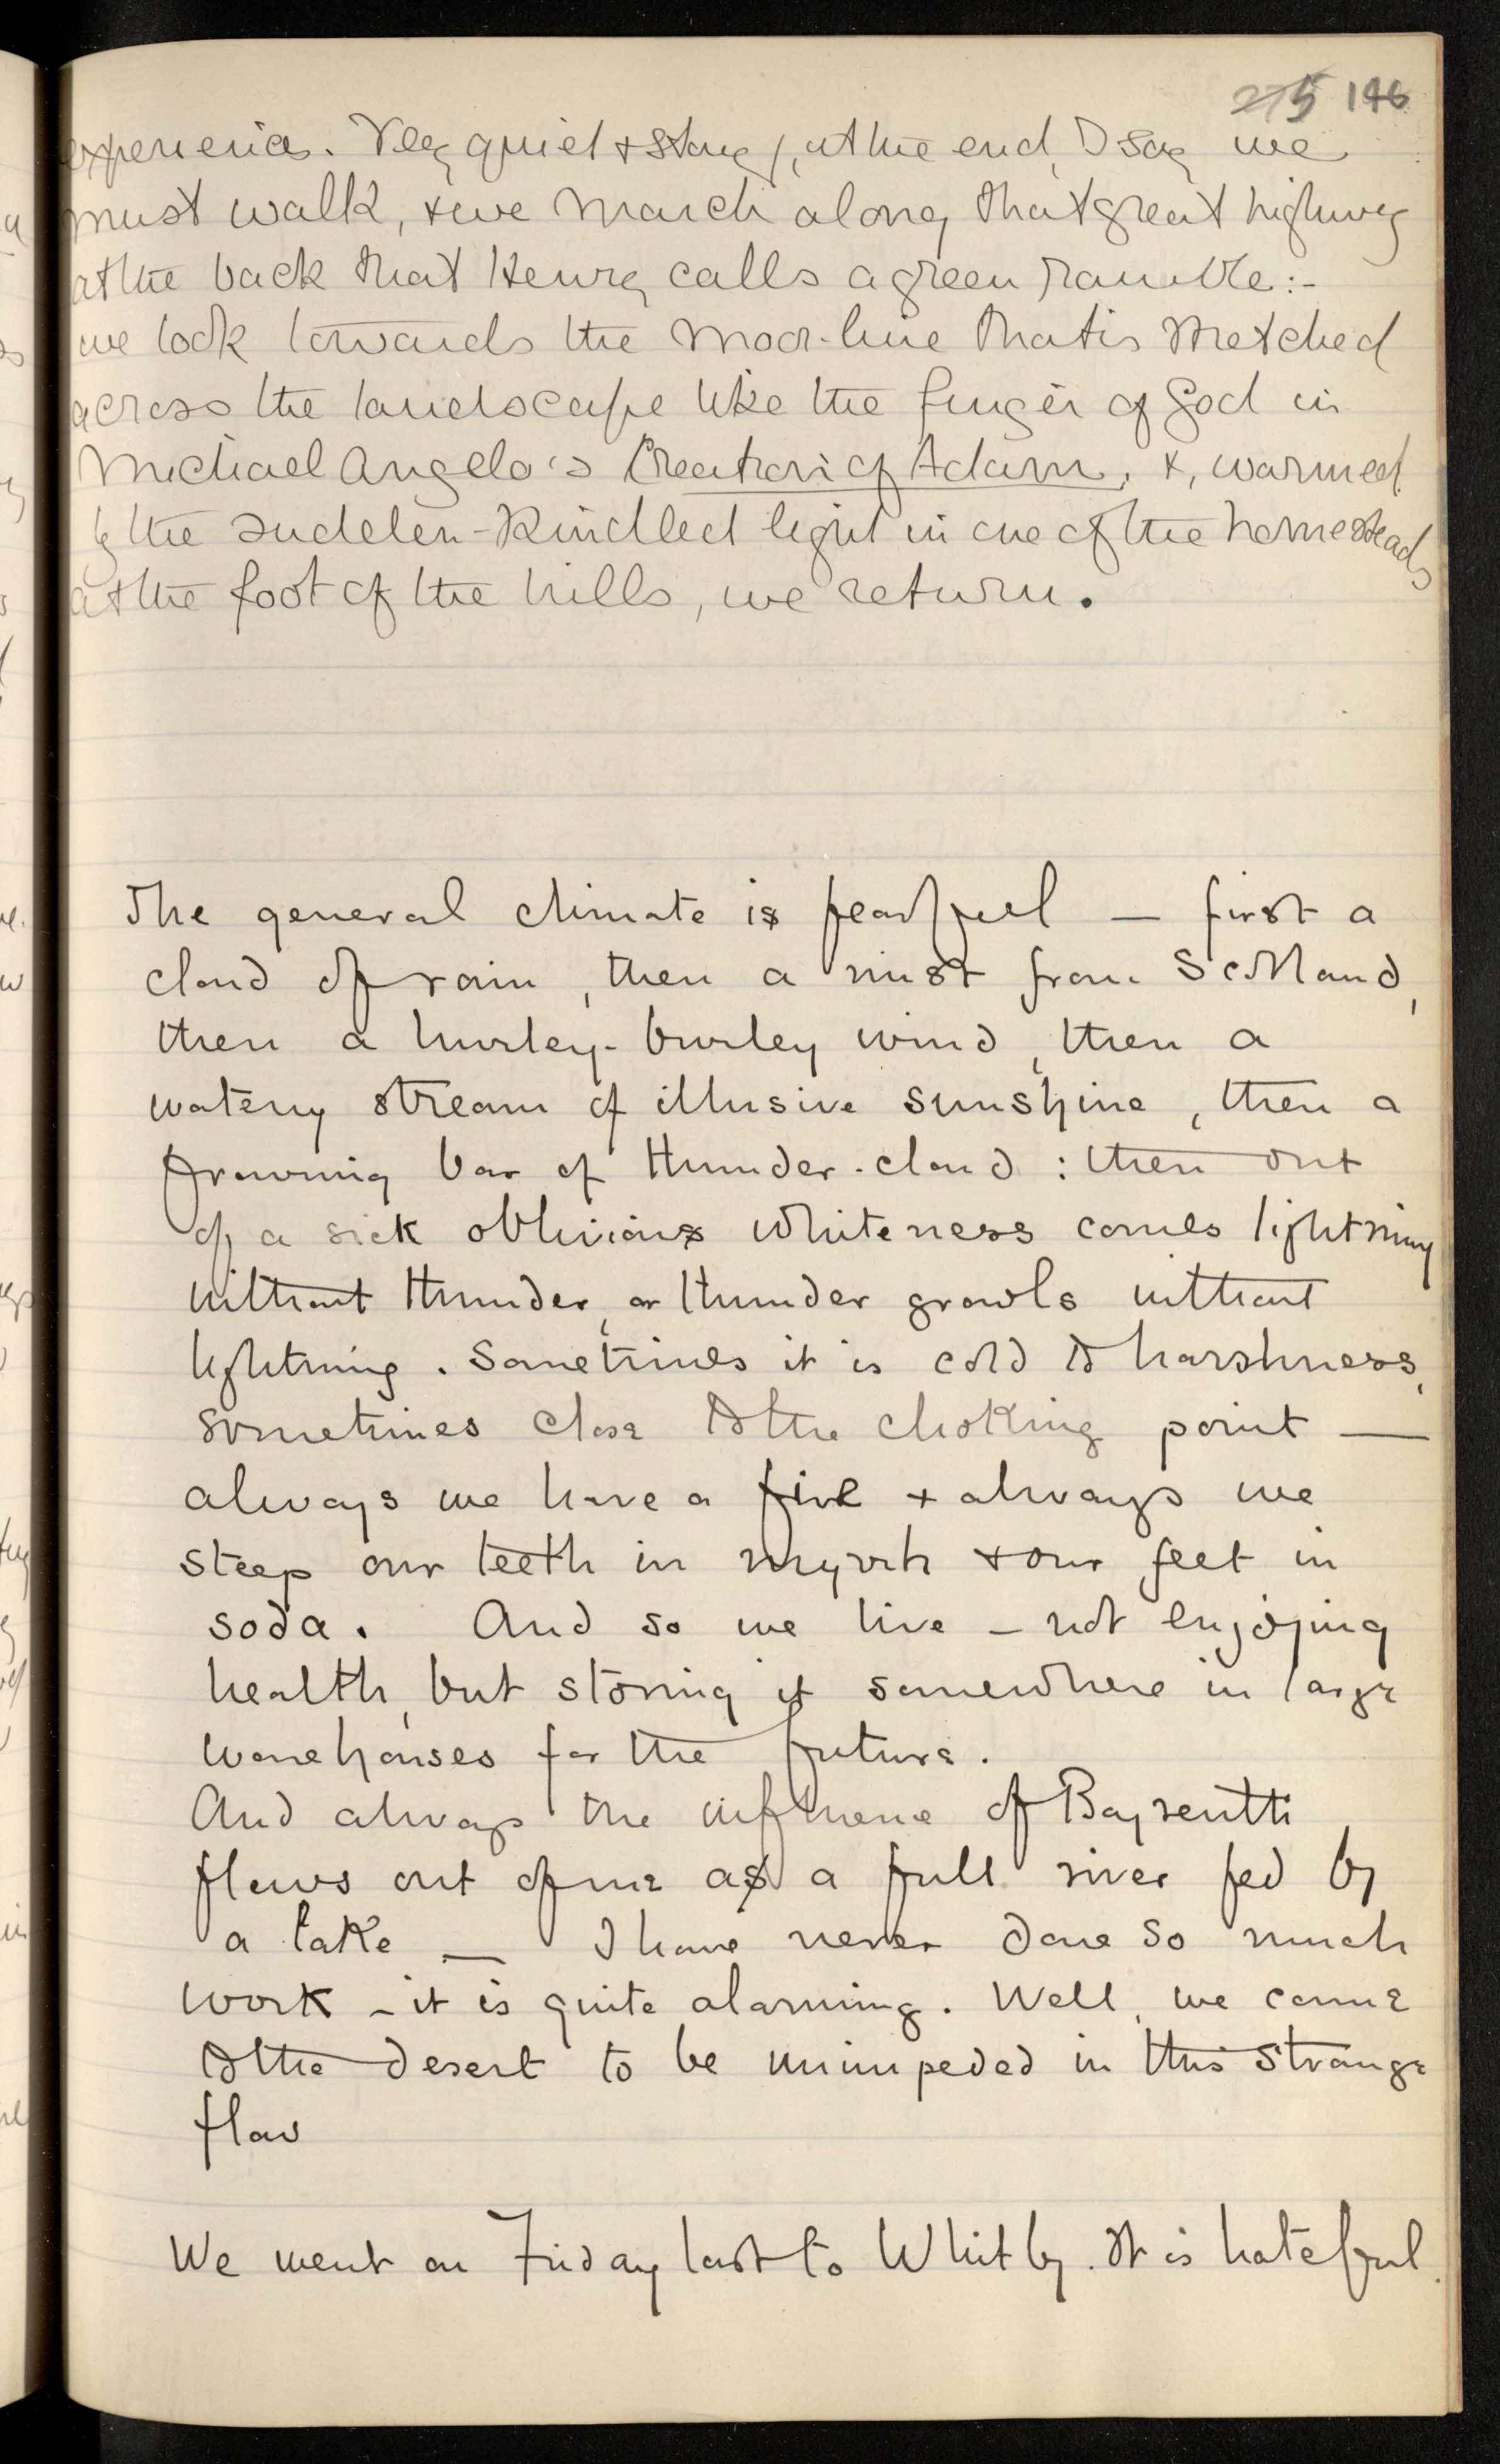 275 146
experience. Very quiet & strong, at the end, I say we
must walk, & we march along that great highway
at the back that Henry calls a green ramble:-
we look towards the moor-line that is stretched
across the landscape like the finger of God in
Michael Angelo's Creation of Adam, &, warmed
by the sudden-kindled light in one of the homesteads
at the foot of the hills, we return.
The general climate is fearful — first a
cloud of rain, then a mist from Scotland,
then a hurley-burley wind, then a
watery stream of illusive sunshine, then a
frowning bar of thunder-cloud: then out
of a sick oblivious whiteness comes lightning
without thunder, or thunder growls without
lightning. Sometimes it is cold to harshness,
sometimes close to the choking point —
always we have a fire & always we
steep our teeth in myrrh & our feet in
soda. And so we live – not enjoying
health, but storing it somewhere in large
warehouses for the future.
And always the influence of Bayreuth
flows out of me as a full river fed by
a lake — I have never done so much
work – it is quite alarming. Well, we came
to the desert to be unimpeded in this strange
flow
We went on Friday last to Whitby. It is hateful.